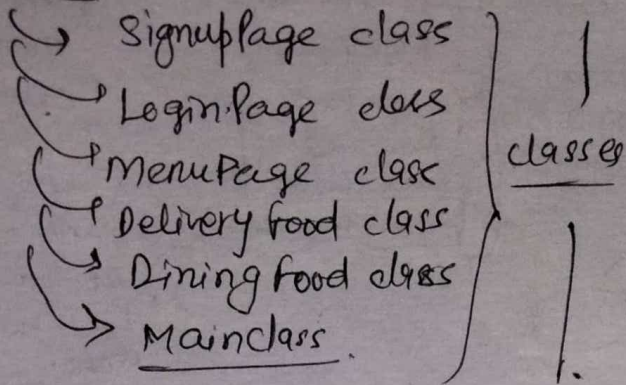 SignupPage class
LoginPage class
MenuPage class
Delivery food class
Dining food class
Mainclass.
classes